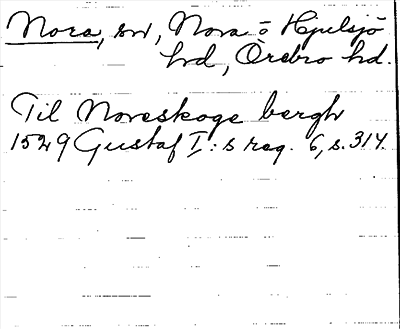 Nora, sn, Nora o Hjulsjö
hd, Örebro hd.
Til Noreskoge bergh
1529 Gustaf I:s reg. 6, s. 314.